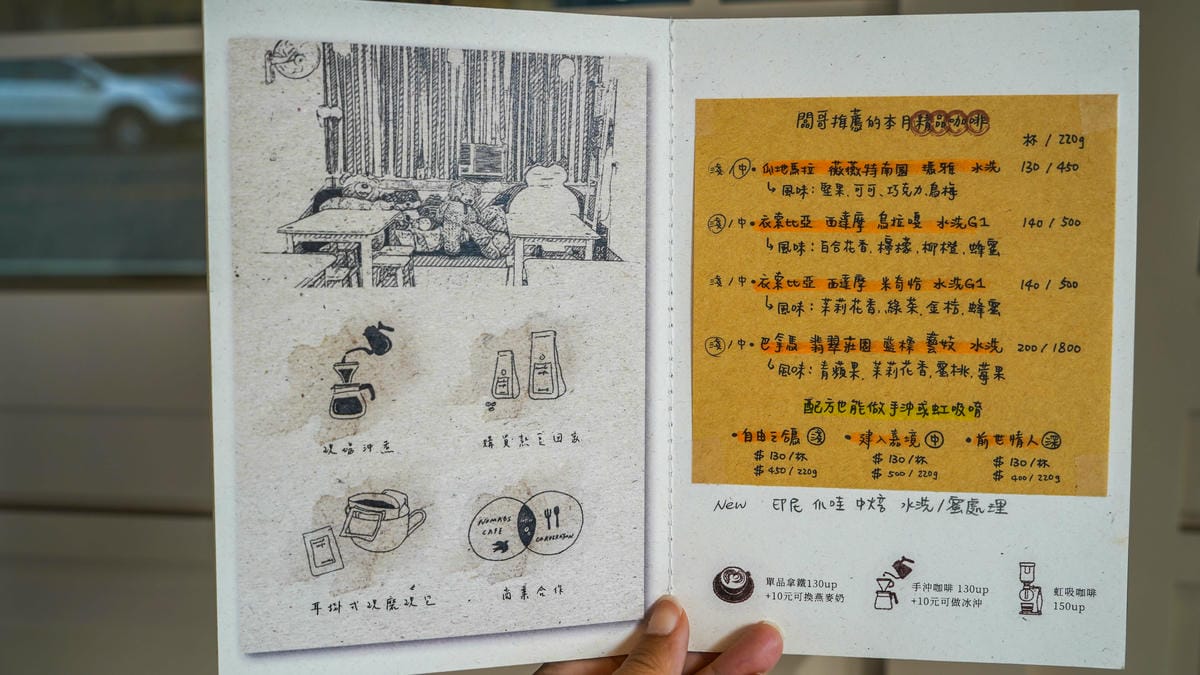 現場沖煮
購買熟豆回家
NOMADS
CAFE
CORPORATION
耳掛式現磨現包
商業合作
闆哥推薦的本月精品咖啡
杯 / 220g
淺/中•瓜地馬拉 薇薇特南國 瑪雅 水洗 130 / 450
↳風味：堅果、可可、巧克力、烏梅
淺/中•衣索比亞 西達摩 烏拉嘎 水洗G1 140 / 500
↳風味：百合花香、檸檬、柳橙、蜂蜜
淺/中•衣索比亞 西達摩 米奇恰 水洗G1 140 / 500
↳風味：茉莉花香、綠茶、金桔、蜂蜜
淺/中•巴拿馬 翡翠莊園 藍標 藝妓 水洗 200 / 1800
↳風味：青蘋果、茉莉花香、蜜桃、莓果
配方也能做手沖或虹吸唷
•自由之鴿 淺 •建入嘉境 中 •前世情人 深
$130/杯 $130/杯 $130/杯
$450/220g $500/220g $400/220g
New 印尼 爪哇 中焙 水洗/蜜處理
單品拿鐵130up
+10元可換燕麥奶
手沖咖啡 130up
+10元可做冰沖
虹吸咖啡
150up